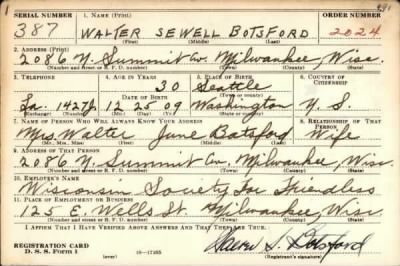 291
SERIAL NUMBER 1. NAME (Print) ORDER NUMBER
387 WALTER SEWELL BOTSFORD 2024
(First) (Middle) (Last)
2. ADDRESS (Print)
2086 N. Summit Av. Milwaukee, Wisc.
(Number and street or R. F. D. number) (Town) (County) (State)
3. TELEPHONE 4. AGE IN YEARS 5. PLACE OF BIRTH 6. COUNTRY OF CITIZENSHIP
30 Seattle
DATE OF BIRTH (Town or county)
La. 1427J 12 25 09 Washington U. S.
(Exchange) (Number) (Mo.) (Day) (Yr.) (State or country)
7. NAME OF PERSON WHO WILL ALWAYS KNOW YOUR ADDRESS 8. RELATIONSHIP OF THAT PERSON
Mrs. Walter June Botsford Wife
(Mr., Mrs., Miss) (First) (Middle) (Last)
9. ADDRESS OF THAT PERSON
2086 N. Summit Av. Milwaukee, Wisc.
(Number and street or R. F. D. number) (Town) (County) (State)
10. EMPLOYER'S NAME
Wisconsin Society For Friendless
11. PLACE OF EMPLOYMENT OR BUSINESS
125 E. Wells St. Milwaukee, Wisc
(Number and street or R. F. D. number) (Town) (County) (State)
I AFFIRM THAT I HAVE VERIFIED ABOVE ANSWERS AND THAT THEY ARE TRUE.
REGISTRATION CARD
D. S. S. Form 1 16-17105 Walter S. Botsford
(Registrant's signature)